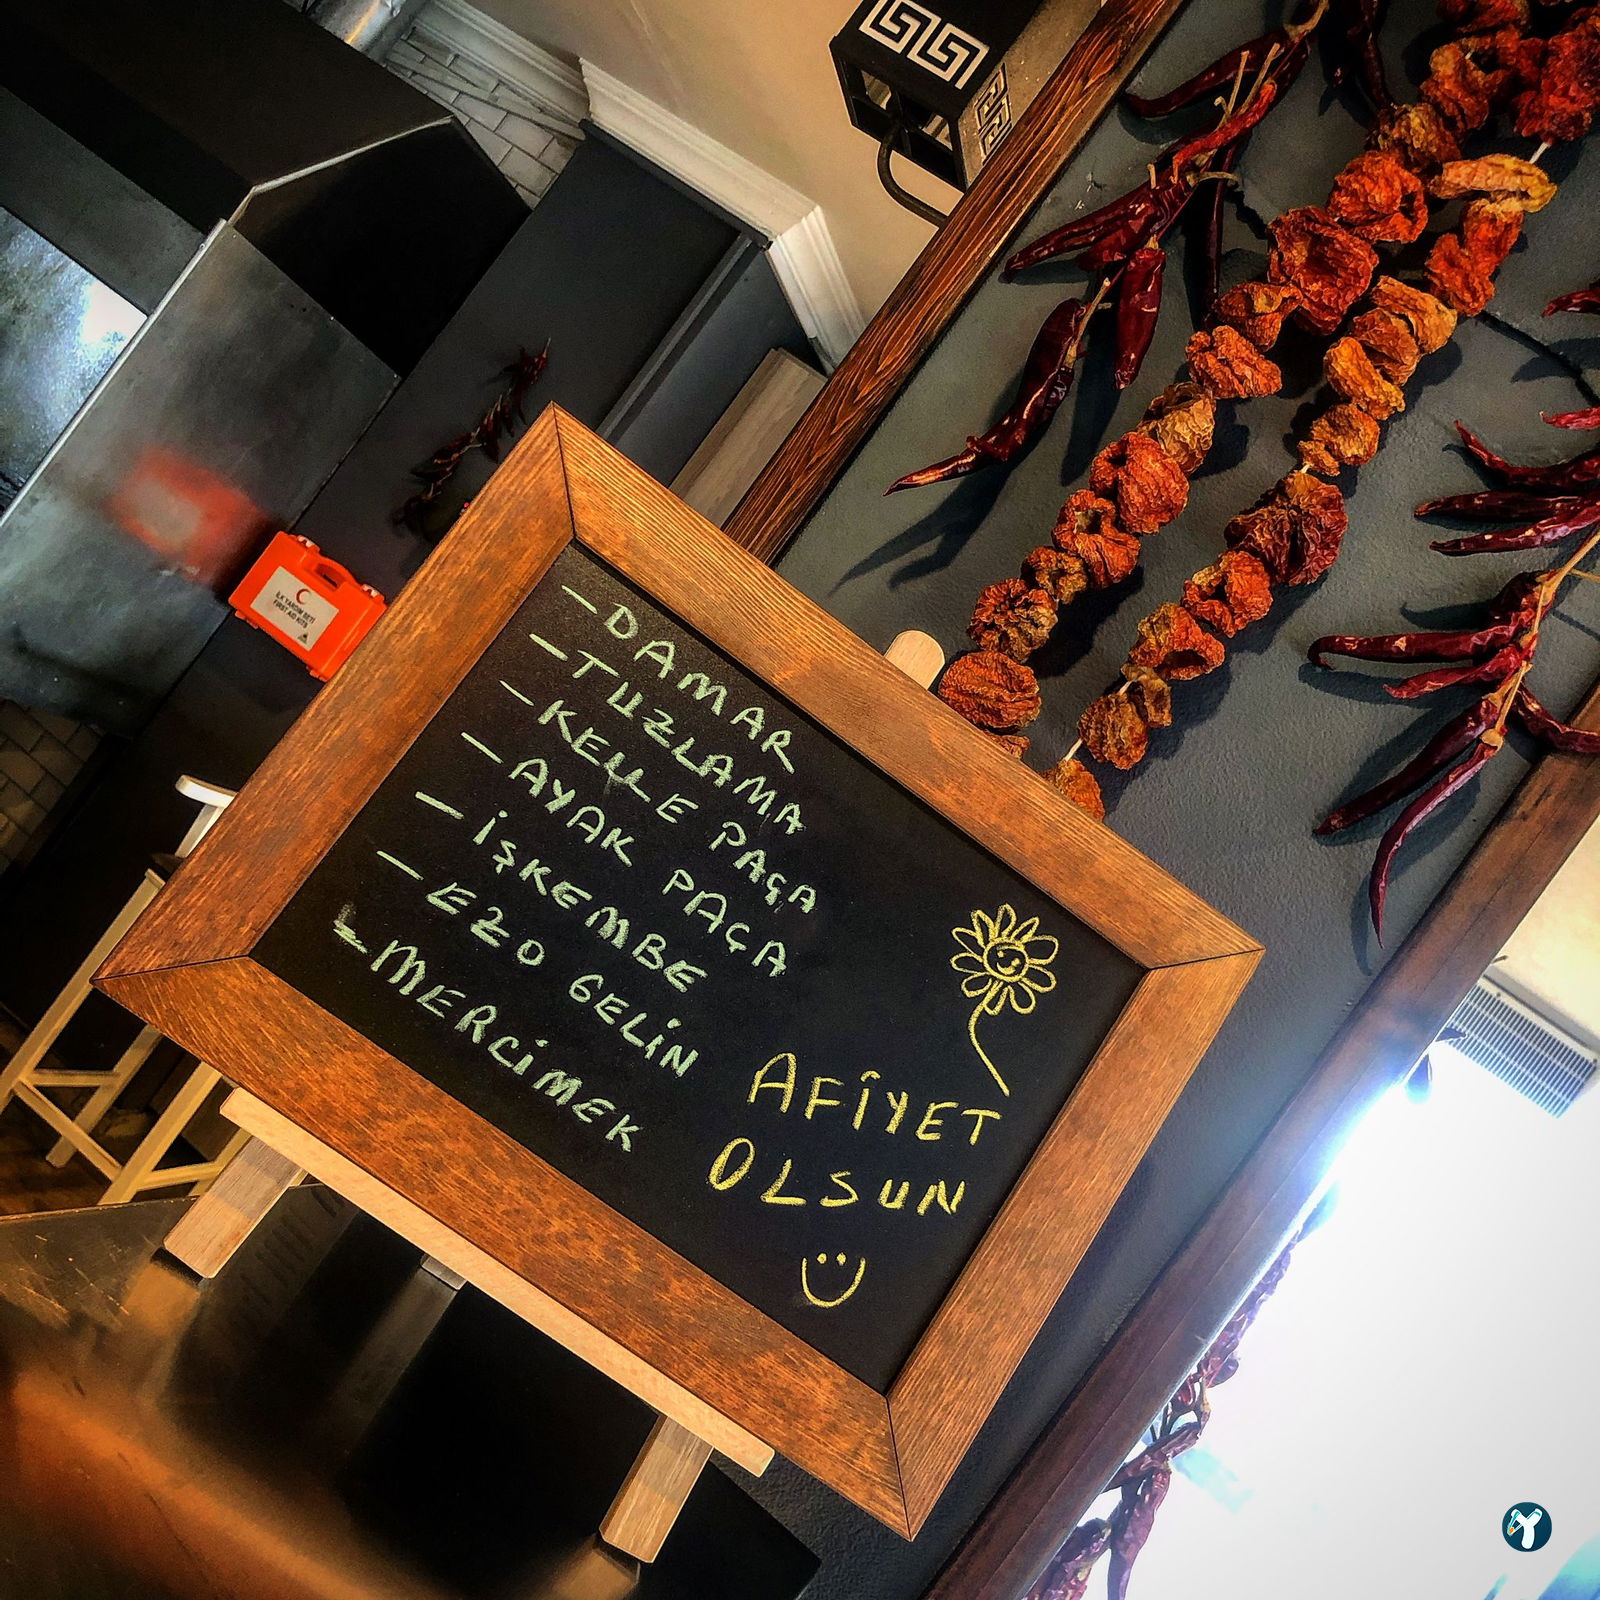 - DAMAR
- TUZLAMA
- KELLE PAÇA
- AYAK PAÇA
- İŞKEMBE
- EZO GELİN
- MERCİMEK
AFİYET
OLSUN
İLK YARDIM SETİ
FIRST AID KITS